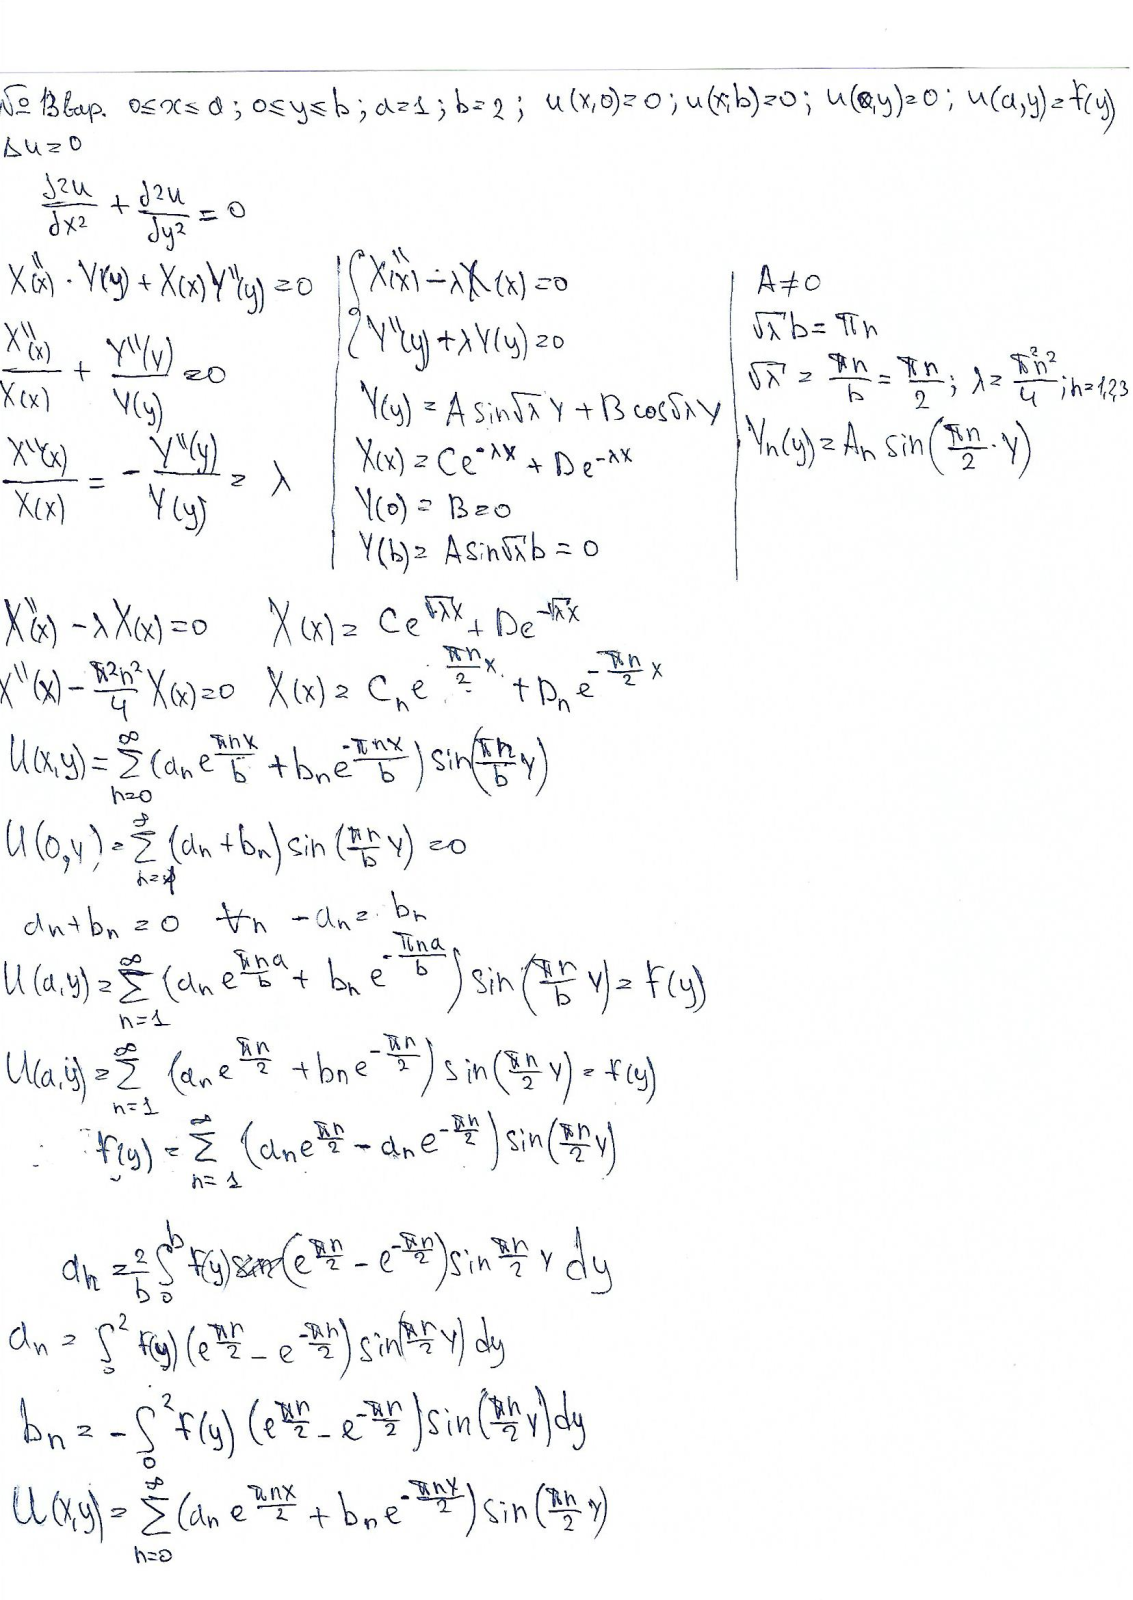 № 13 вар. 0≤x≤a; 0≤y≤b; a=1; b=2; u(x,0)=0; u(x,b)=0; u(0,y)=0; u(a,y)=f(y)
Δu=0
∂²u/∂x² + ∂²u/∂y² = 0
X''(x)·Y(y) + X(x)Y''(y) = 0
X''(x)/X(x) + Y''(y)/Y(y) = 0
X''(x)/X(x) = - Y''(y)/Y(y) = λ
{ X''(x) - λX(x) = 0
Y''(y) + λY(y) = 0
Y(y) = A sin√λ y + B cos√λ y
X(x) = Ce^(-λx) + De^(-λx)
Y(0) = B = 0
Y(b) = A sin√λ b = 0
A ≠ 0
√λ b = πn
√λ = πn/b = πn/2; λ = π²n²/4; n=1,2,3
Yn(y) = An sin(πn/2 · y)
X''(x) - λX(x) = 0 X(x) = Ce^(√λx) + De^(-√λx)
X''(x) - π²n²/4 X(x) = 0 X(x) = Cn e^(πn/2 x) + Dn e^(-πn/2 x)
U(x,y) = Σ_(n=0)^∞ (an e^(πnx/b) + bn e^(-πnx/b)) sin(πn/b y)
U(0,y) = Σ_(n=1)^∞ (an + bn) sin(πn/b y) = 0
an + bn = 0 ∀n -an = bn
U(a,y) = Σ_(n=1)^∞ (an e^(πna/b) + bn e^(-πna/b)) sin(πn/b y) = f(y)
U(a,y) = Σ_(n=1)^∞ (an e^(πn/2) + bn e^(-πn/2)) sin(πn/2 y) = f(y)
f(y) = Σ_(n=1)^∞ (an e^(πn/2) - an e^(-πn/2)) sin(πn/2 y)
an = 2/b ∫_0^b f(y) (e^(πn/2) - e^(-πn/2)) sin πn/2 y dy
an = ∫_0^2 f(y) (e^(πn/2) - e^(-πn/2)) sin(πn/2 y) dy
bn = - ∫_0^2 f(y) (e^(πn/2) - e^(-πn/2)) sin(πn/2 y) dy
U(x,y) = Σ_(n=0)^∞ (an e^(πnx/2) + bn e^(-πnx/2)) sin(πn/2 y)